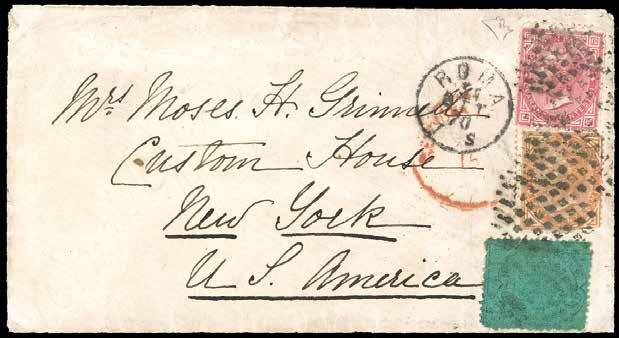 ROMA
70
S
Mrs Moses H. Grinnell
Custom House
New York
U S. America